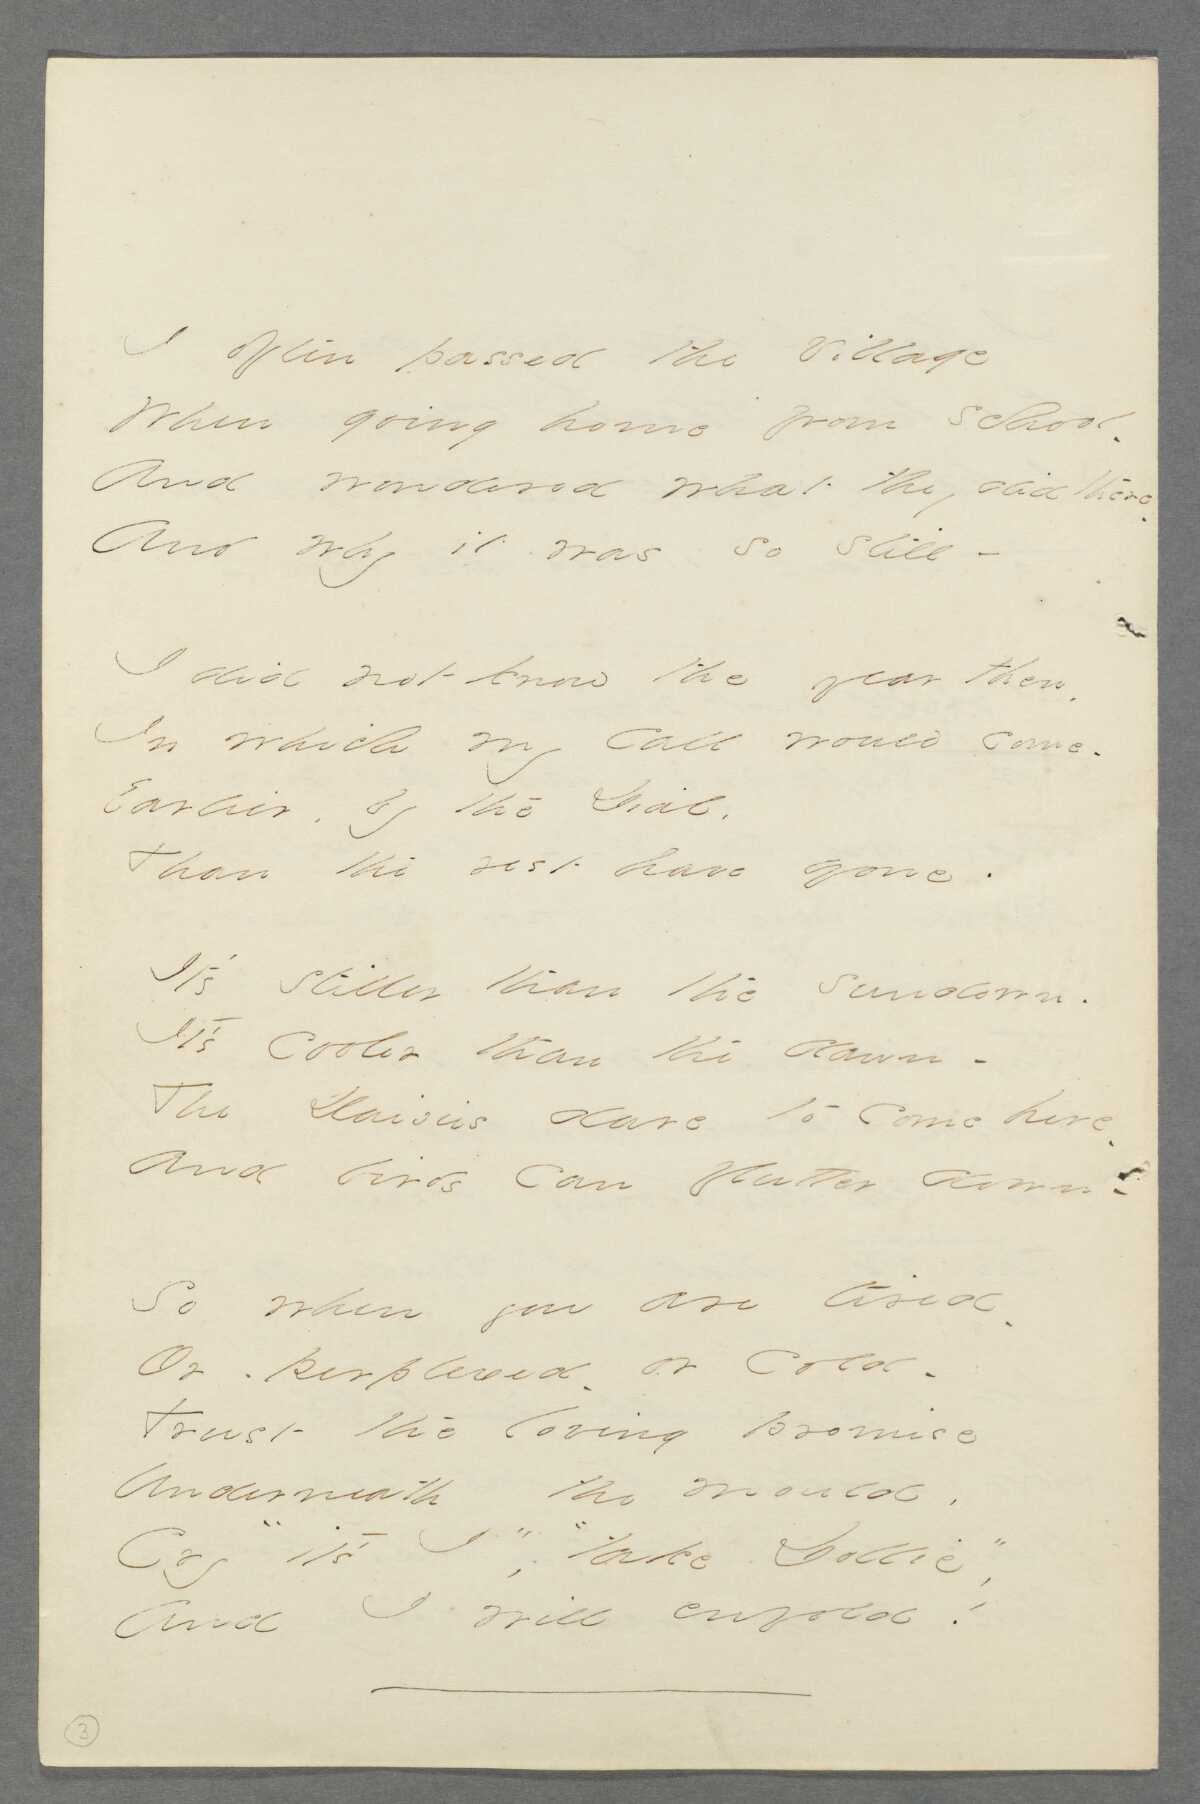 I often passed the Village
When going home from school -
And wondered what they did there -
And why it was so still -
I did not know the year then,
In which my call would come -
Earlier, by the Dial,
Than the rest have gone.
It's stiller than the sundown.
It's cooler than the dawn -
The Daisies dare to come here -
And birds can flutter down -
So when you are tired -
Or perplexed - or cold -
Trust the loving promise
Underneath the mould,
Cry "it's I", "take Dollie",
And I will enfold!
3